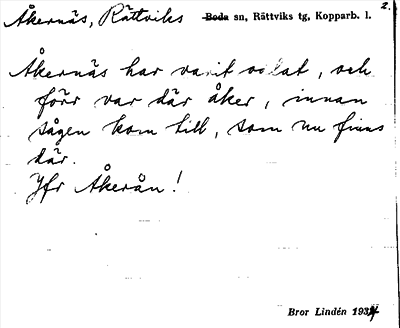 2.
Åkernäs, Rättviks Boda sn, Rättviks tg, Kopparb. l.
Åkernäs har varit odlat, och
förr var där åker, innan
sågen kom till, som nu finns
där.
Jfr Åkerån!
Bror Lindén 1934